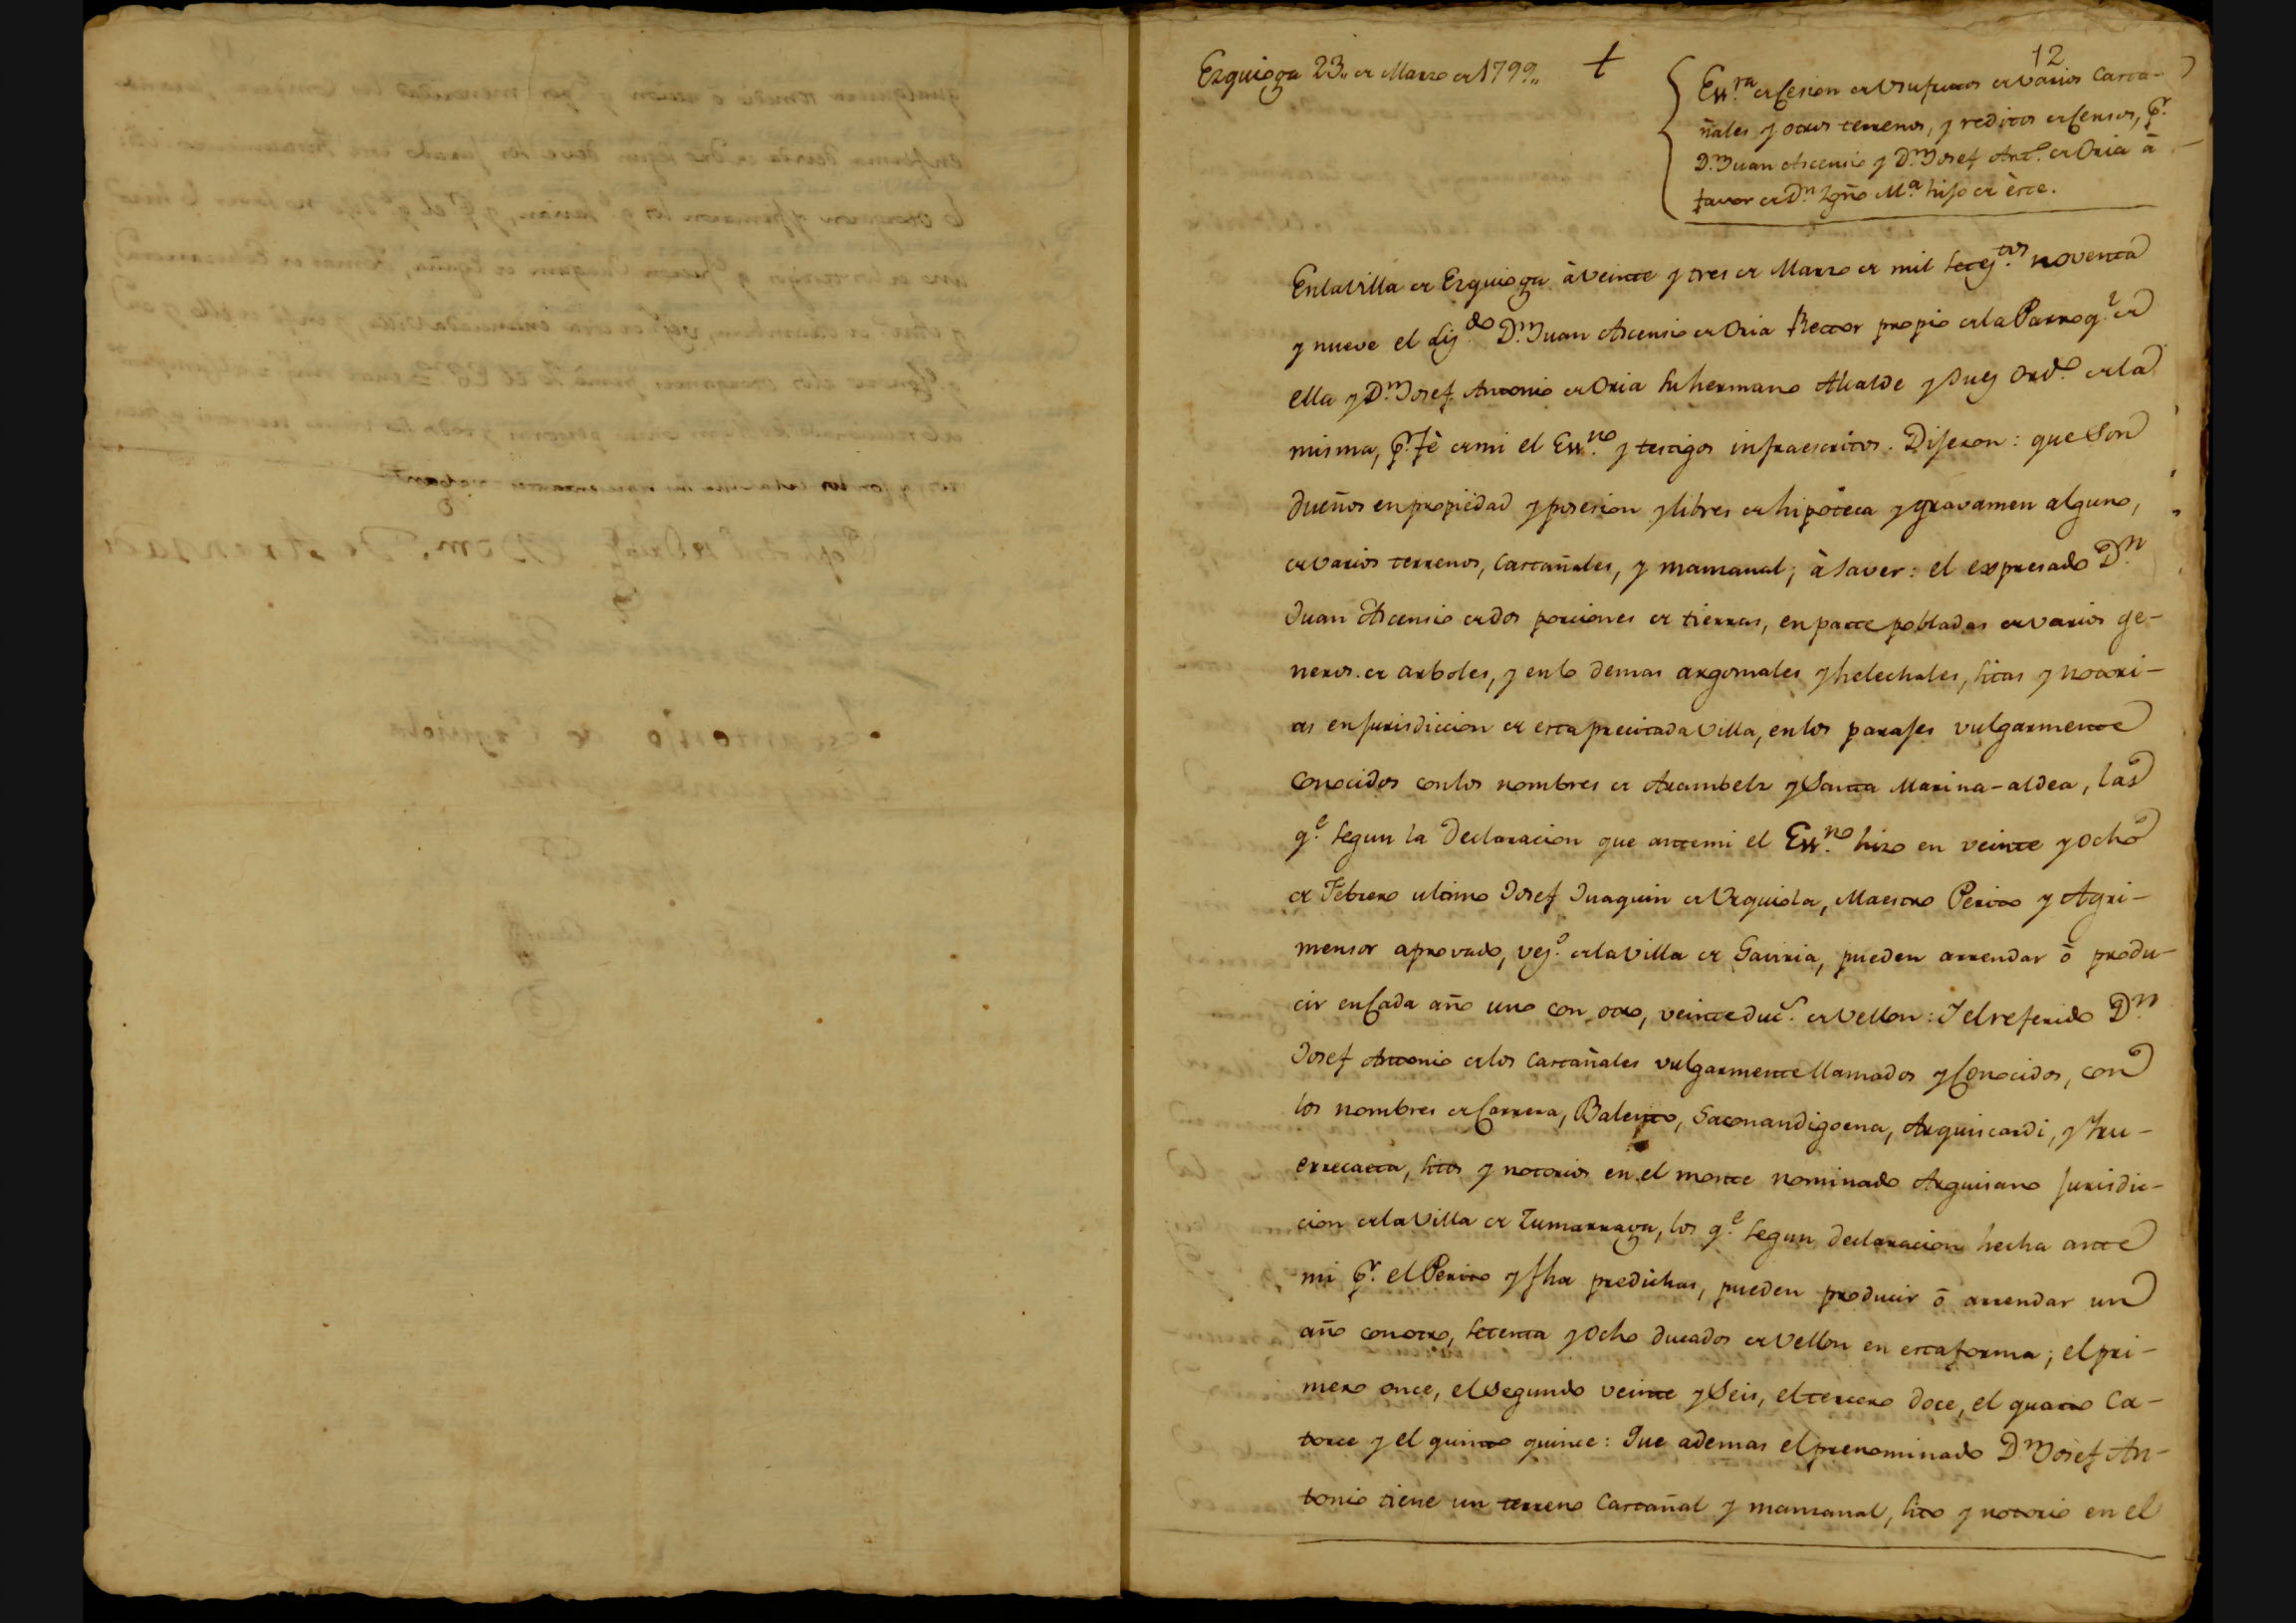 12
Ezquioga 23,, de Marzo de 1799,,
Essra de Cesion de Usufructos de varios Casta-
ñales y otros terrenos, y reditos de Censos, pr.
Dn. Juan Ascensio y Dn. Josef Anto. de Oria à
favor de Dn. Igño Ma. hijo de èste.
En la Villa de Ezquioga à veinte y tres de Marzo de mil Setezos. noventa
y nueve el Lizdo. Dn. Juan Ascensio de Oria Rector propio de la Parroql. de
ella y Dn. Josef Antonio de Oria Su hermano Alcalde y Juez Ordo. de la
misma, pr. fè de mi el Essno. y testigos infraescritos. Dijeron: que Son
dueños en propiedad y posesion y libres de hipoteca y gravamen alguno,
de varios terrenos, Castañales, y manzanal; à Saver: el expresado Dn.
Juan Ascensio de dos porciones de tierras, en parte pobladas de varios ge-
neros de arboles, y en lo demas argomales y helechales, Sitas y notori-
as en jurisdiccion de esta precitada Villa, en los parajes vulgarmente
Conocidos con los nombres de Arambelz y Santa Marina-aldea, las
qe. Segun la Declaracion que ante mi el Essno. hizo en veinte y ocho
de Febrero ultimo Josef Juaquin de Urquiola, Maestro Perito y Agri-
mensor aprovado, vezo. de la Villa de Gaviria, pueden arrendar ô produ-
cir en Cada año uno con otro, veinte ducs. de Vellon: Y el referido Dn.
Josef Antonio de los Castañales vulgarmente llamados y Conocidos, con
los nombres de Carrera, Balento, Saconandigoena, Arguiscardi, y Iru-
errecaeta, Sitos y notorios en el monte nominado Arguisano jurisdic-
cion de la Villa de Zumarraga, los qe. Segun declaracion hecha ante
mi pr. el Perito y fha predichas, pueden producir ô arrendar un
año con otro, Setenta y ocho ducados de Vellon en esta forma; el pri-
mero once, el Segundo veinte y Seis, el tercero doce, el quarto Ca-
torce y el quinto quince: Que ademas el prenominado Dn. Josef An-
tonio tiene un terreno Castañal y manzanal, Sito y notorio en el